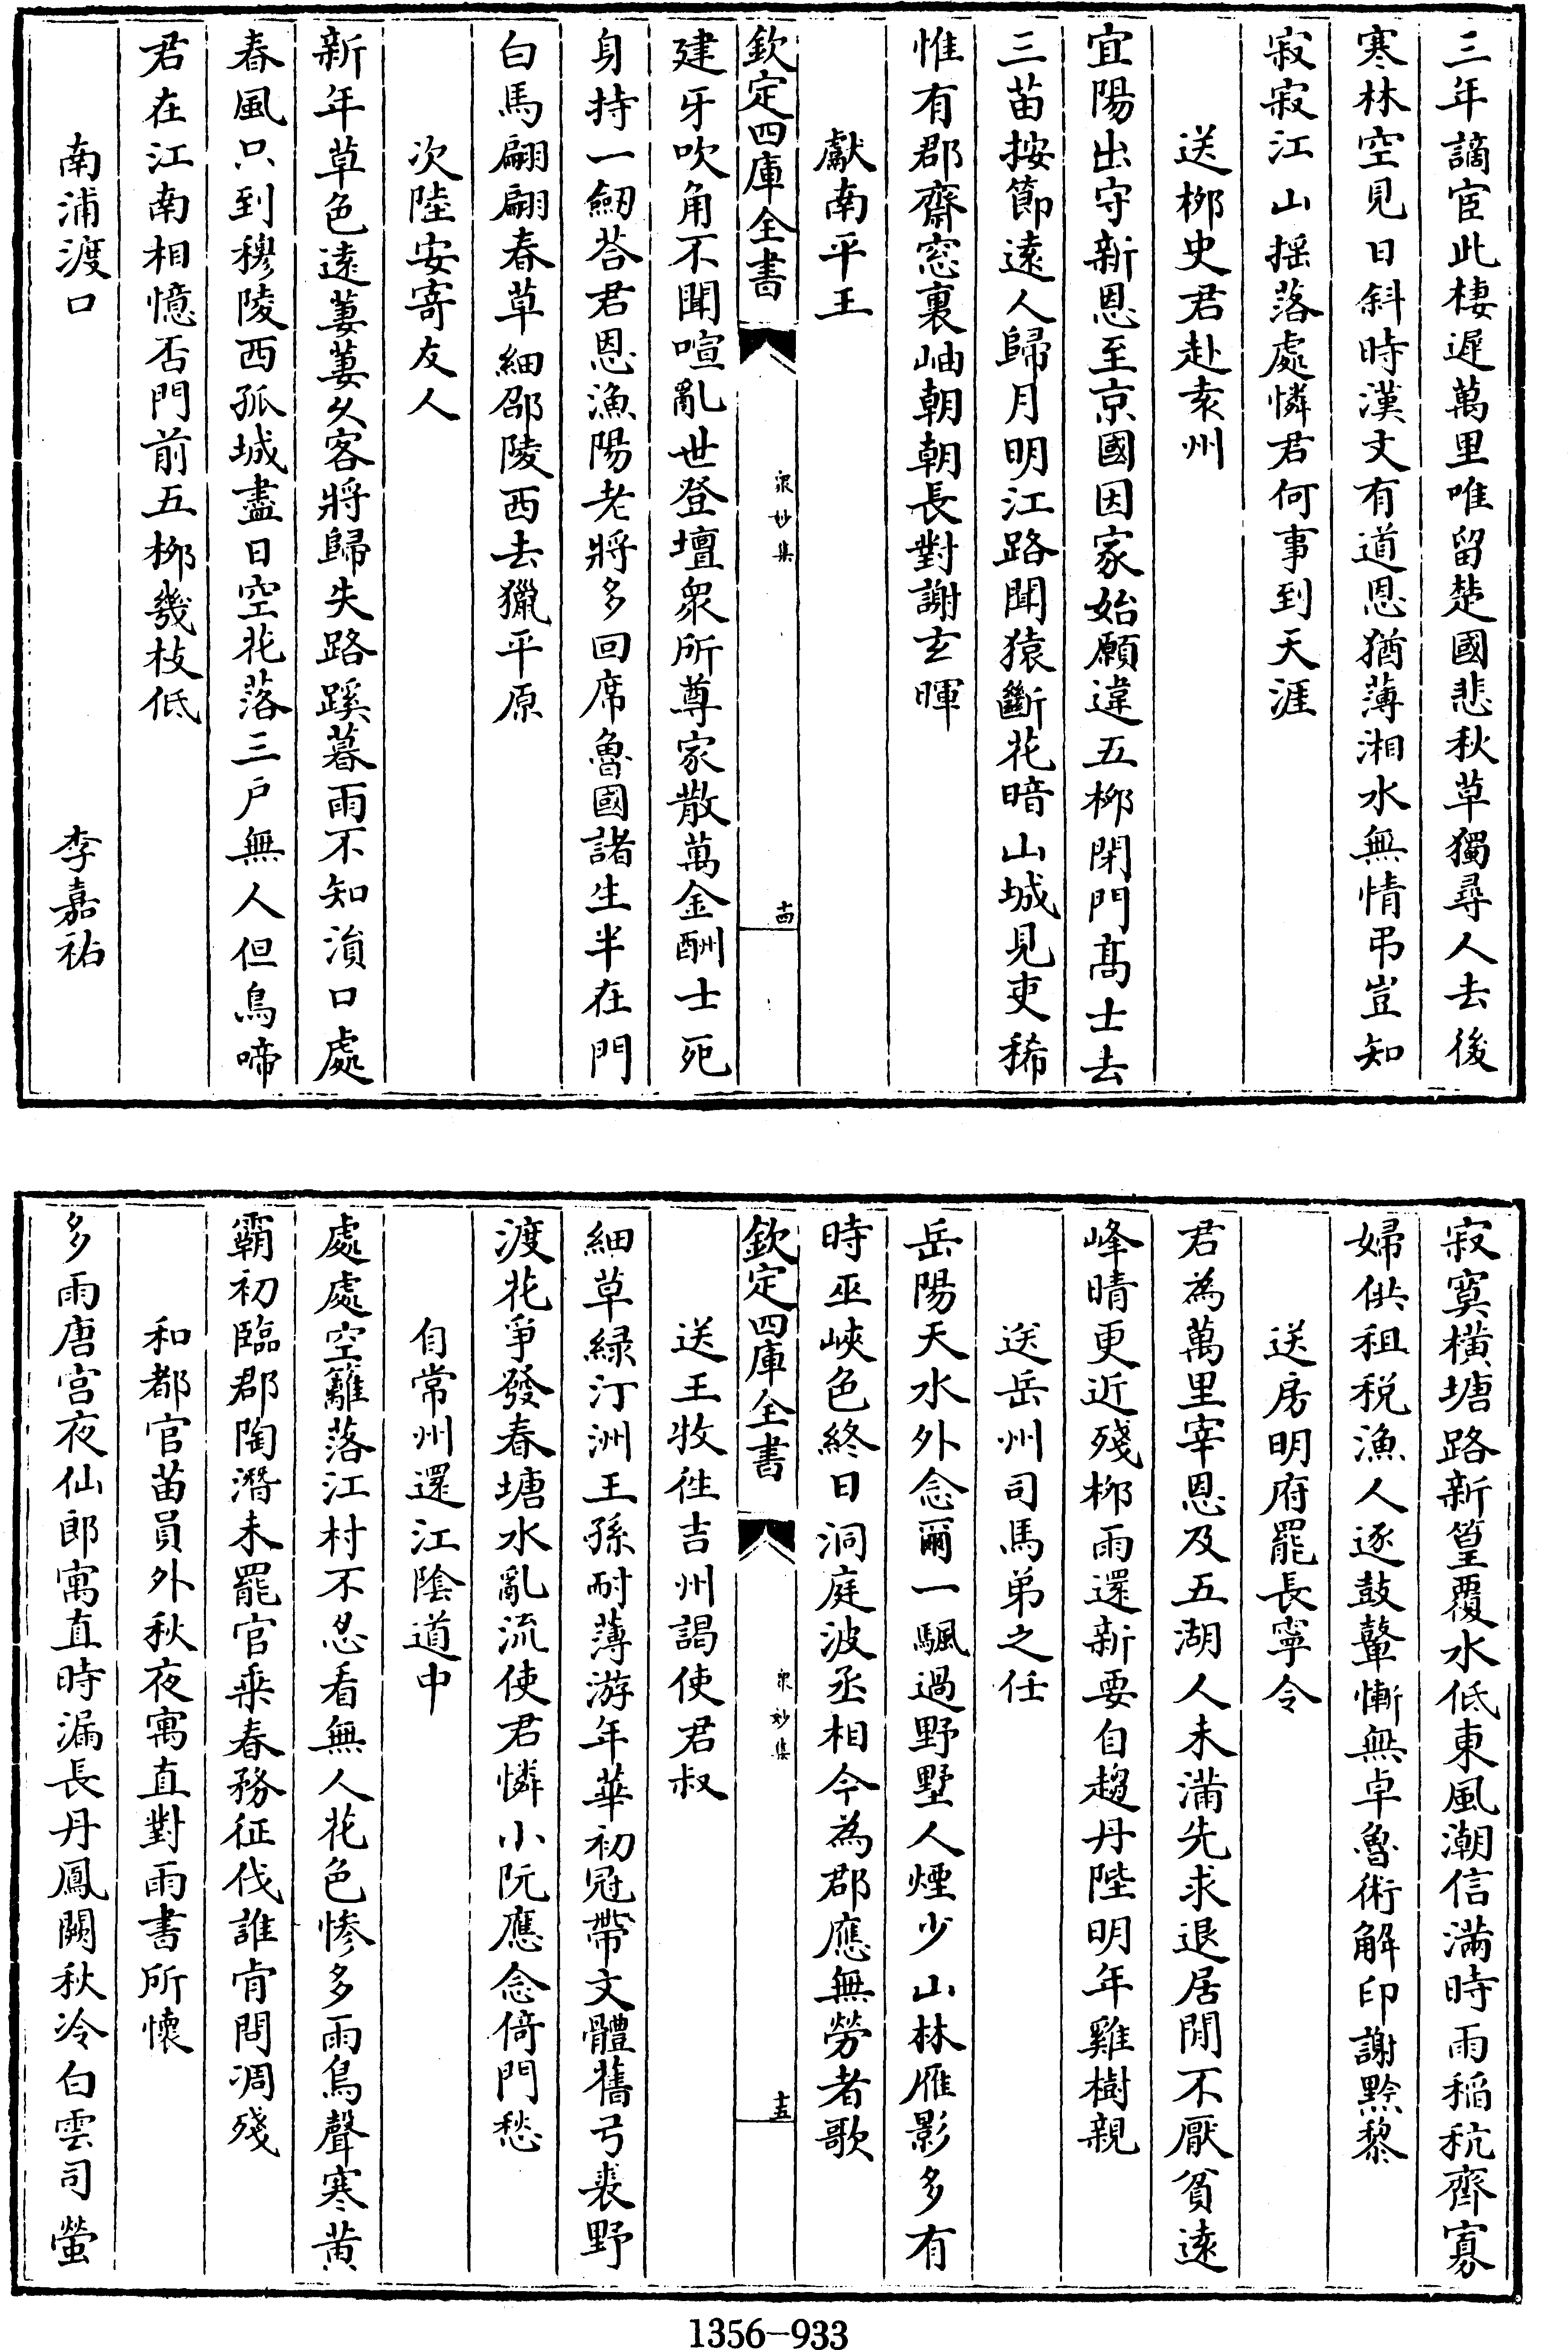 三年謫宦此棲遲萬里唯留楚國悲秋草獨尋人去後
寒林空見日斜時漢文有道恩猶薄湘水無情弔豈知
寂寂江山揺落處憐君何事到天涯
送栁史君赴袁州
宜陽出守新恩至京國因家始願違五栁閉門髙士去
三苗按節遠人歸月明江路聞猿斷花暗山城見吏稀
惟有郡齋窓裏岫朝朝長對謝玄暉
獻南平王
欽定四庫全書
衆妙集
十四
建牙吹角不聞喧亂世登壇衆所尊家散萬金酬士死
身持一劒荅君恩漁陽老將多回席魯國諸生半在門
白馬翩翩春草細邵陵西去獵平原
次陸安寄友人
新年草色遠萋萋乆客將歸失路蹊暮雨不知溳口處
春風只到穆陵西孤城盡日空花落三戸無人但鳥啼
君在江南相憶否門前五栁幾枝低
南浦渡口
李嘉祐
寂寞横塘路新篁覆水低東風潮信滿時雨稻秔齊寡
婦供租税漁人逐鼓鼙慚無卓魯術解印謝黔黎
送房明府罷長寧令
君為萬里宰恩及五湖人未滿先求退居閒不厭貧逺
峰晴更近殘栁雨還新要自趨丹陛明年雞樹親
送岳州司馬弟之任
岳陽天水外念爾一颿過野墅人煙少山林雁影多有
時巫峽色終日洞庭波丞相今為郡應無勞者歌
欽定四庫全書
衆妙集
十五
送王牧徃吉州謁使君叔
細草緑汀洲王孫耐薄游年華初冠帶文體舊弓裘野
渡花爭發春塘水亂流使君憐小阮應念倚門愁
自常州還江隂道中
處處空籬落江村不忍看無人花色慘多雨鳥聲寒黄
霸初臨郡陶潛未罷官乗春務征伐誰肯問凋殘
和都官苗員外秋夜寓直對雨書所懷
多雨唐宫夜仙郎寓直時漏長丹鳳闕秋冷白雲司螢
1356-933